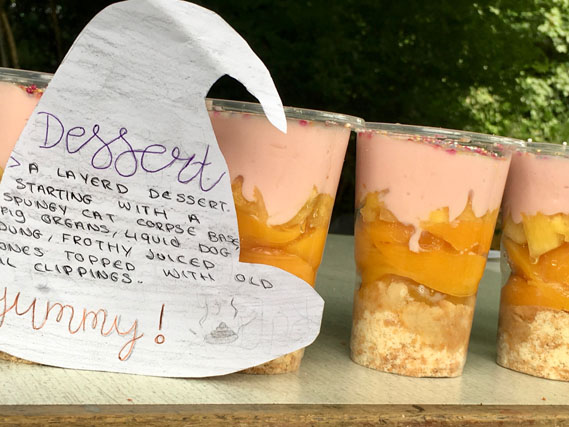 Dessert
> A LAYERD DESSERT.
STARTING WITH A
SPUNGY CAT CORPSE BASE
PIG ORGANS, LIQUID DOG
DUNG, FROTHY JUICED
ONES TOPPED WITH OLD
CLIPPINGS.
yummy!